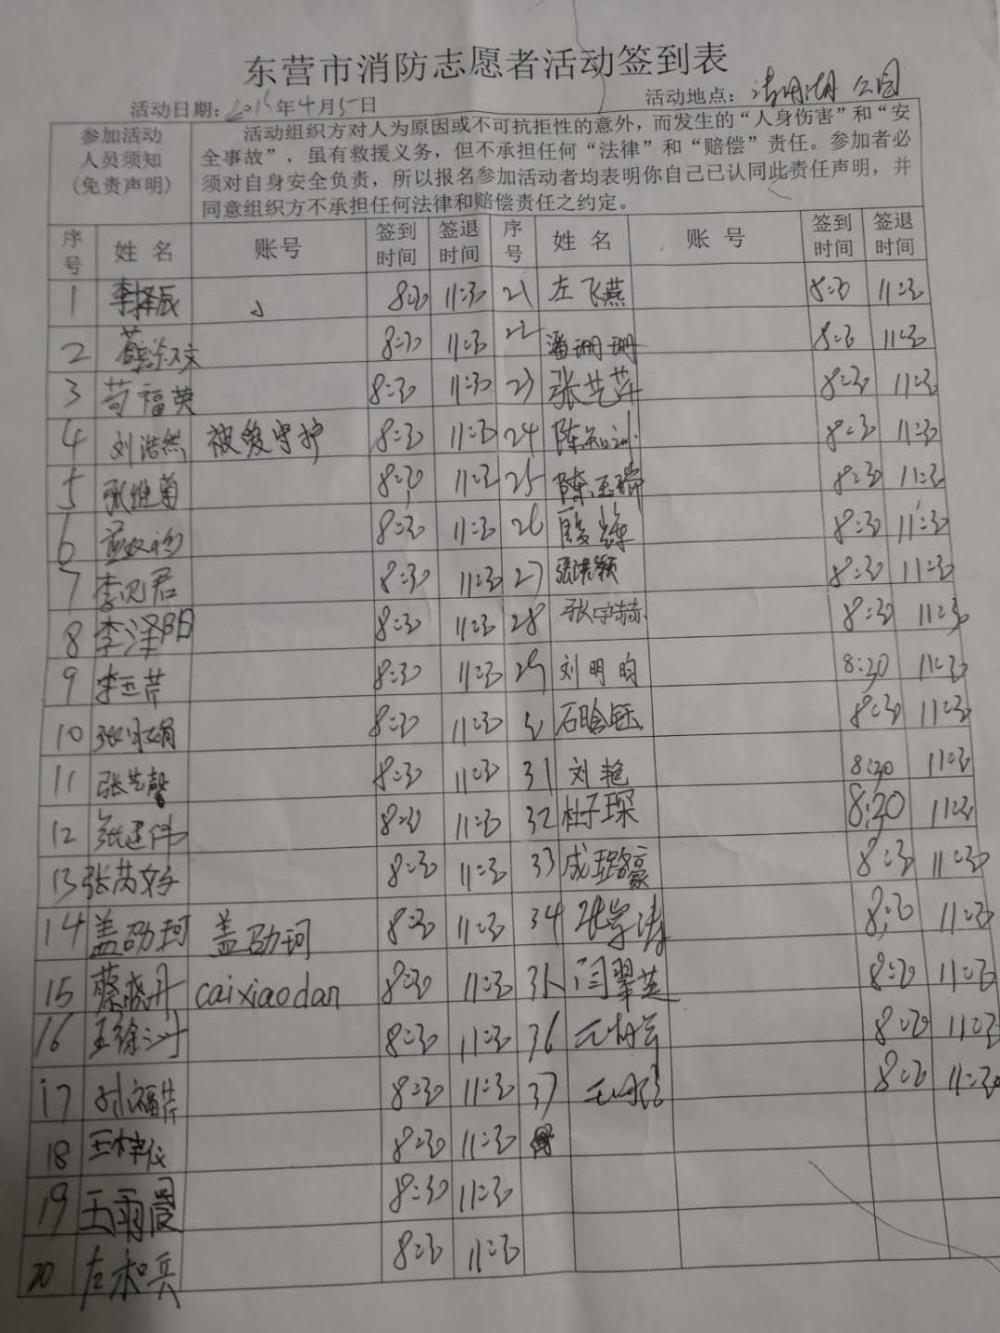 东营市消防志愿者活动签到表
活动日期：年4月5日 活动地点：清明湖公园
参加活动人员须知(免责声明)
活动组织方对人为原因或不可抗拒性的意外，而发生的“人身伤害”和“安
全事故”，虽有救援义务，但不承担任何“法律”和“赔偿”责任。参加者必
须对自身安全负责，所以报名参加活动者均表明你自己已认同此责任声明，并
同意组织方不承担任何法律和赔偿责任之约定。
序号 姓名 账号 签到时间 签退时间 序号 姓名 账号 签到时间 签退时间
1 李择辰 8:30 11:30 21 左飞燕 8:30 11:30
2 8:30 11:30 22 潘珊珊 8:30 11:30
3 苟福英 8:30 11:30 23 张艺萍 8:30 11:30
4 刘浩然 被爱守护 8:30 11:30 24 8:30 11:30
5 张维菊 8:30 11:30 25 陈玉瑞 8:30 11:30
6 8:30 11:30 26 8:30 11:30
7 8:30 11:30 27 8:30 11:30
8 李泽阳 8:30 11:30 28 张宇赫 8:30 11:30
9 李玉芹 8:30 11:30 29 刘明昀 8:30 11:30
10 8:30 11:30 30 石晗钰 8:30 11:30
11 张艺馨 8:30 11:30 31 刘艳 8:30 11:30
12 张建伟 8:30 11:30 32 杜子琛 8:30 11:30
13 张芮 8:30 11:30 33 成璐豪 8:30 11:30
14 盖劭珂 盖劭珂 8:30 11:30 34 张学涛 8:30 11:30
15 蔡晓丹 caixiaodan 8:30 11:30 35 闫翠英 8:30 11:30
16 8:30 11:30 36 8:30 11:30
17 刘福芹 8:30 11:30 37 8:30 11:30
18 王梓仪 8:30 11:30
19 王雨晨 8:30 11:30
20 左和兵 8:30 11:30